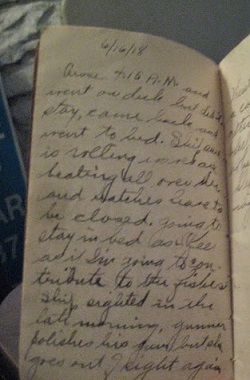 6/16/18
Arose 4:15 A.M. and
went on deck but didn't
stay, came back and
went to bed. Ship
is rolling
beating all over her
and hatches have to
be closed. going to
stay in bed as
as if I'm going to con-
tribute to the fishes
Ship sighted in the
late morning, gunner
polishes his gun but she
goes out of sight again
AR
37